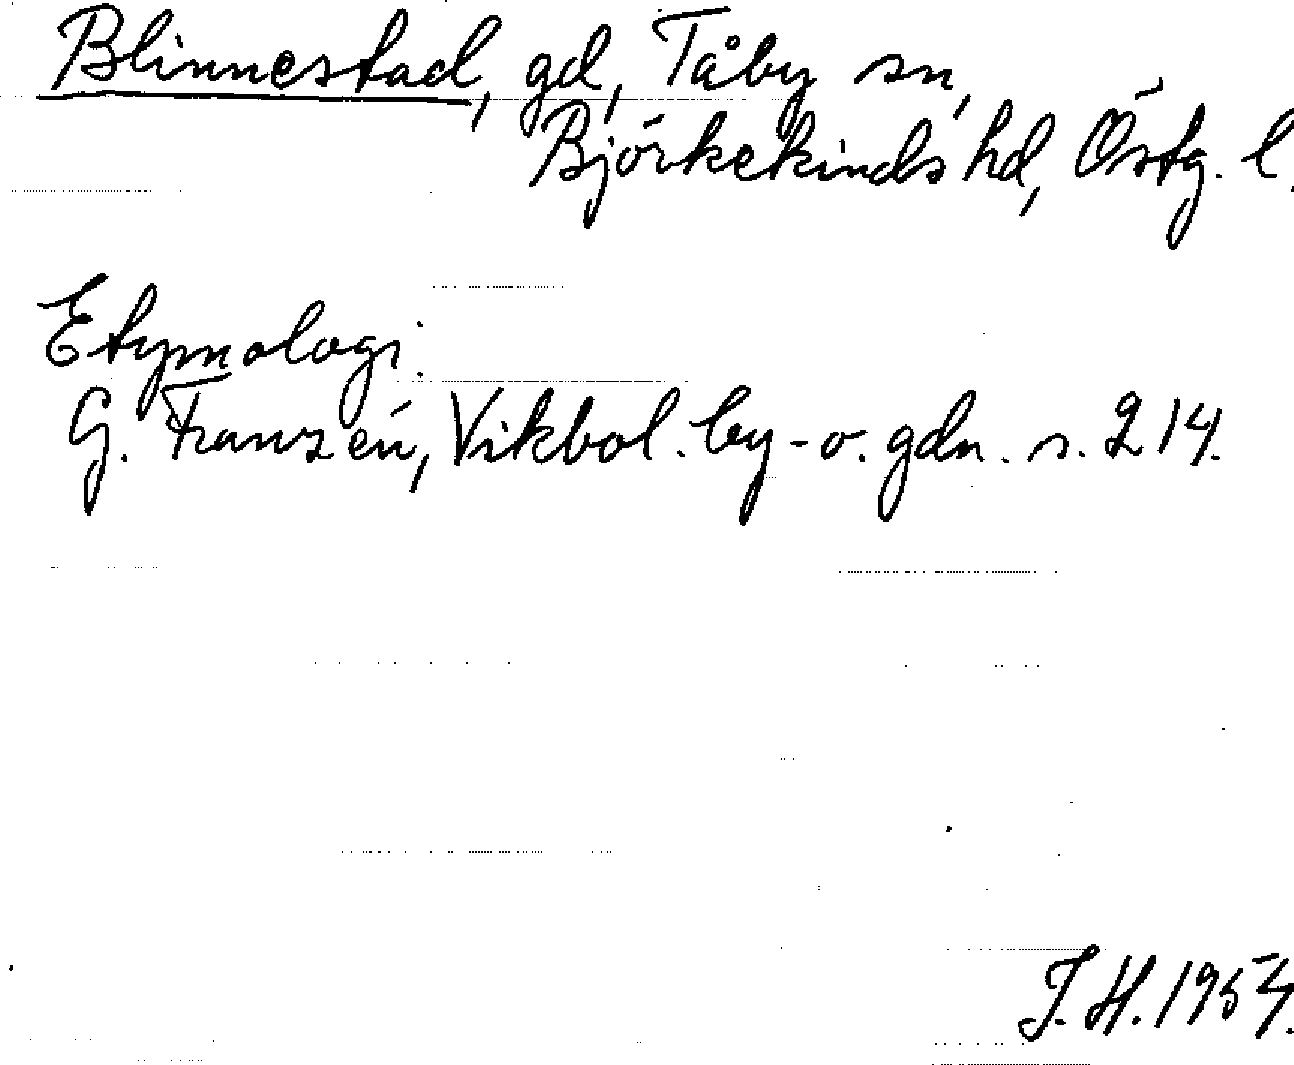 Blinnestad, gd, Tåby sn,
Björkekinds hd, Östg. l.
Etymologi:
G. Franzén, Vikbol. by- o. gdn. s. 214.
J. H. 1954.